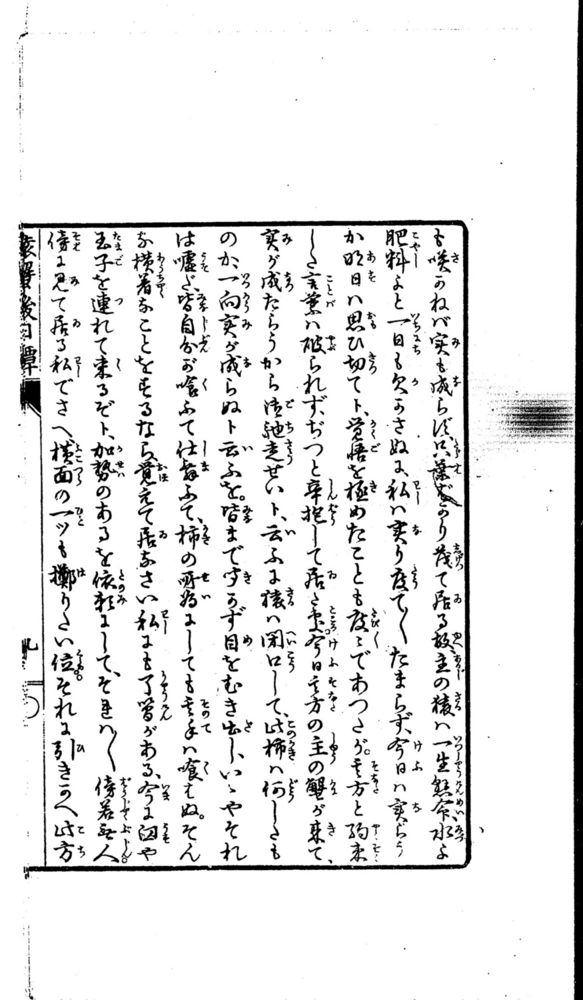 も咲かねバ実も成らず只葉ばかり茂て居る故主の猿ハ一生懸命水よ
肥料よと一日も欠かさぬに、私ハ実り度て〳〵たまらず、今日ハ実らう
か明日ハ思ひ切てト、覚悟を極めたことも度々であつたが其方と約束
した言葉ハ破られず、ぢつと辛抱して居た処、今日其方の主の蟹が来て、
実が成たらうから御馳走せいト、云ふに猿ハ閉口して、此柿ハ何したも
のか、一向実が成らぬト云ふを。皆まできかず目をむき出し、いゝやそれ
は嘘だ、皆自分が喰ふて仕舞ふて、柿の所為にしても其手ハ喰はぬ。そん
な横着なことをするなら、覚えて居なさい私にも了簡がある、今に臼や
玉子を連れて来るぞト、加勢のあるを依頼にして、それハ〳〵傍若無人
傍に見て居る私でさへ、横面の一ツも擲りたい位それに引きかへ此方
猿蟹後日譚
九